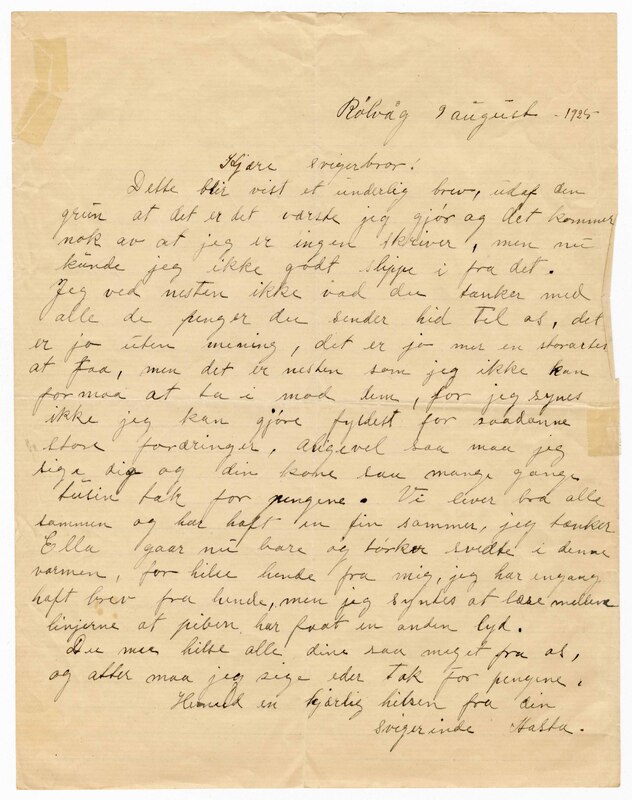 Rölvåg 9 august - 1925
Kjære svigerbror!
Dette blir vist et underlig brev, udaf den
grun at det er det værste jeg gjör og det kommer
nok av at jeg er ingen skriver, men nu
kunde jeg ikke godt slippe i fra det.
Jeg ved nesten ikke vad du tænker med
alle de penger du sender hid til os, det
er jo uten mening, det er jo mer en storartet
at faa, men det er nesten som jeg ikke kan
formaa at ta i mod dem, for jeg synes
ikke jeg kan gjöre fyldest for saadanne
store fordringer, alligevel saa maa jeg
sige dig og din kone saa mange gange
tusin tak for pengene. Vi liver bra alle
sammen og har haft en fin sommer, jeg tænker
Ella gaar nu bare og törker svedte i denne
varmen, for hilse hende fra mig, jeg har engang
haft brev fra hende, men jeg syntes at læse mellem
linjerne at piben har faat en anden lyd.
Du maa hilse alle dine saa meget fra os,
og atter maa jeg sige eder tak for pengene.
Hermed en kjærlig hilsen fra din
svigerinde Hasta.